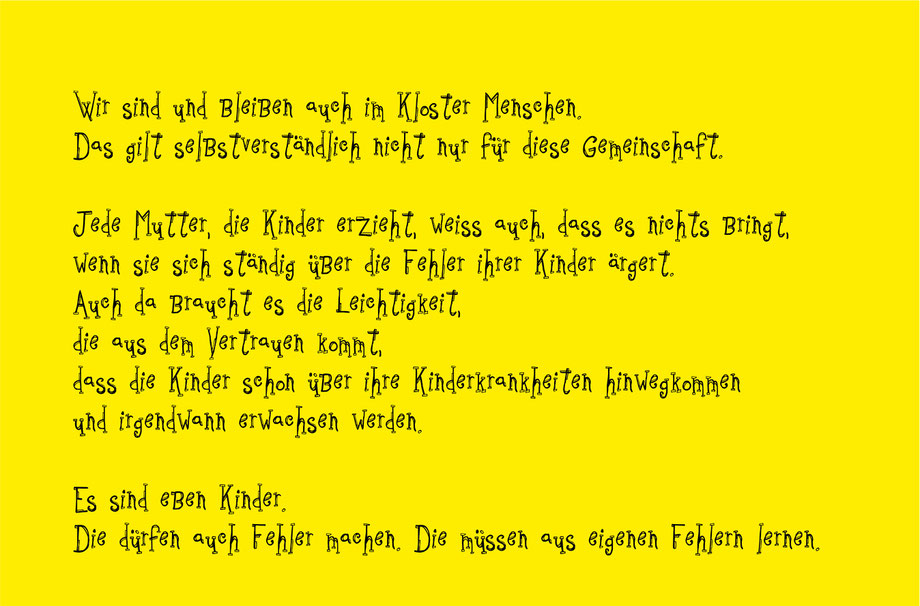 Wir sind und bleiben auch im Kloster Menschen.
Das gilt selbstverständlich nicht nur für diese Gemeinschaft.
Jede Mutter, die Kinder erzieht, weiss auch, dass es nichts bringt,
wenn sie sich ständig über die Fehler ihrer Kinder ärgert.
Auch da braucht es die Leichtigkeit,
die aus dem Vertrauen kommt,
dass die Kinder schon über ihre Kinderkrankheiten hinwegkommen
und irgendwann erwachsen werden.
Es sind eben Kinder.
Die dürfen auch Fehler machen. Die müssen aus eigenen Fehlern lernen.